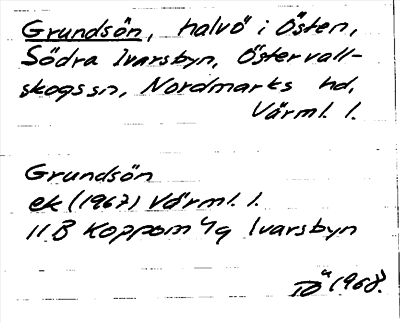 Grundsön, halvö i Östen,
Södra Ivarsbyn, Östervall-
skogs sn, Nordmarks hd,
Värml. l.
Grundsön
ek (1967) Värml. l.
11B Koppom 4g Ivarsbyn
TÖ 1968.